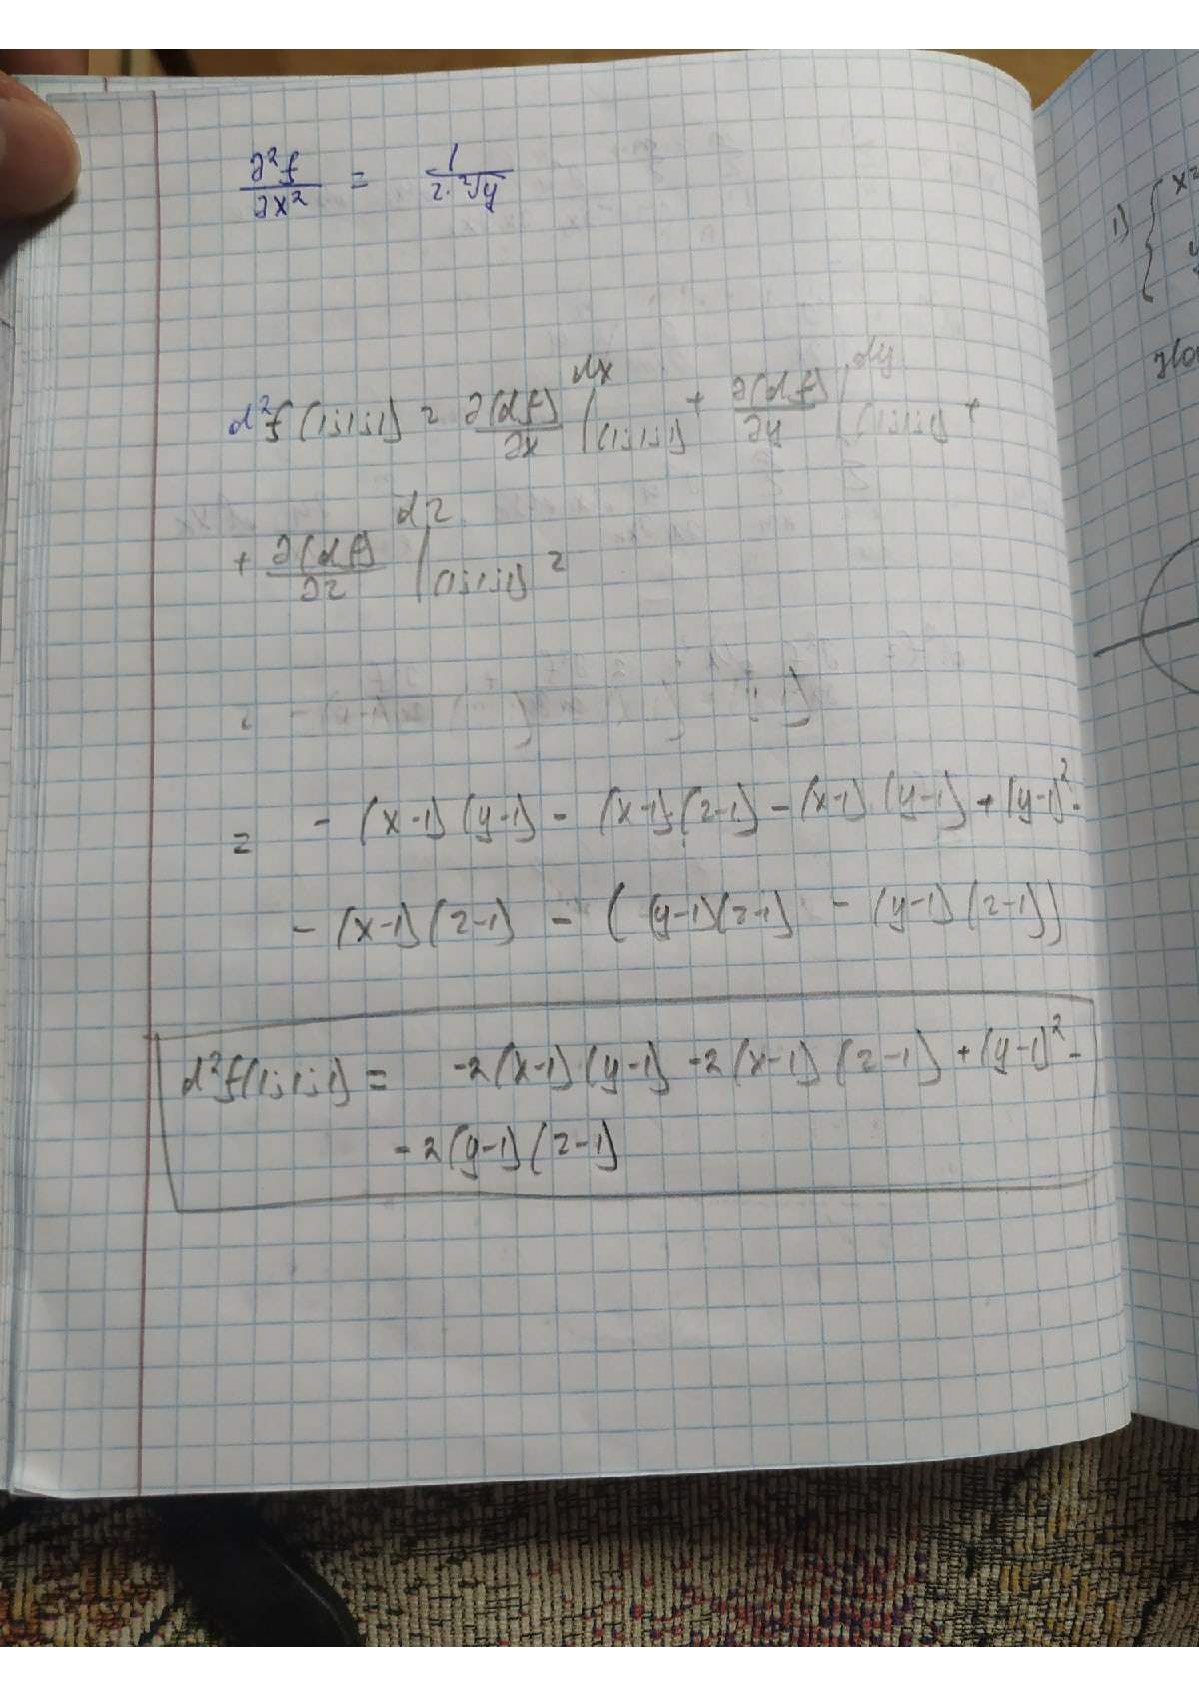 ∂²f/∂x² = 1/(2·²√y)
d²f(1;1;1) = ∂(df)/∂x |(1;1;1) dx + ∂(df)/∂y |(1;1;1) dy +
+ ∂(df)/∂z |(1;1;1) dz =
= - (x-1)(y-1) - (x-1)·(z-1) - (x-1)·(y-1) + (y-1)² -
- (x-1)(z-1) - ((y-1)(z-1) - (y-1)(z-1))
d²f(1;1;1) = -2(x-1)·(y-1) -2(x-1)(z-1) + (y-1)² -
- 2(y-1)(z-1)
1) { x²